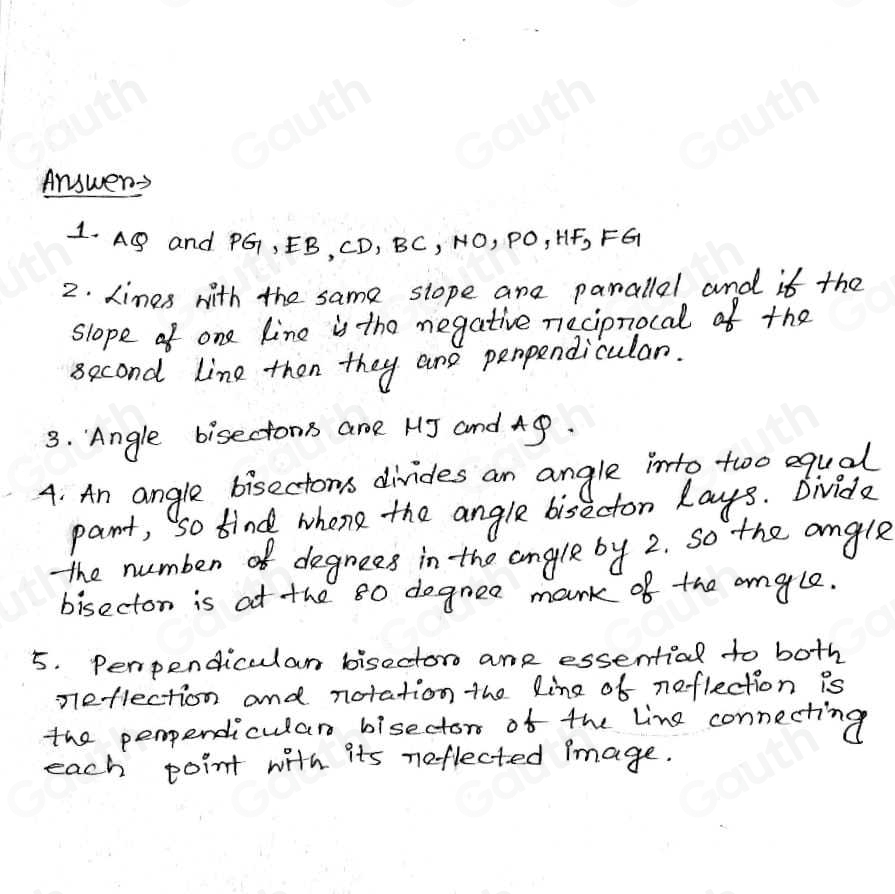 Answer→
1. AQ and PG, EB, CD, BC, NO, PO, HF, FG
2. Lines with the same slope are parallel and if the
slope of one line is the negative reciprocal of the
second line then they are perpendicular.
3. Angle bisectors are HJ and AQ.
4. An angle bisectors divides an angle into two equal
part, so find where the angle bisector lays. Divide
the number of degrees in the angle by 2. so the angle
bisector is at the 80 degree mark of the angle.
5. Perpendicular bisector are essential to both
reflection and rotation the line of reflection is
the perpendicular bisector of the line connecting
each point with its reflected image.
Gauth